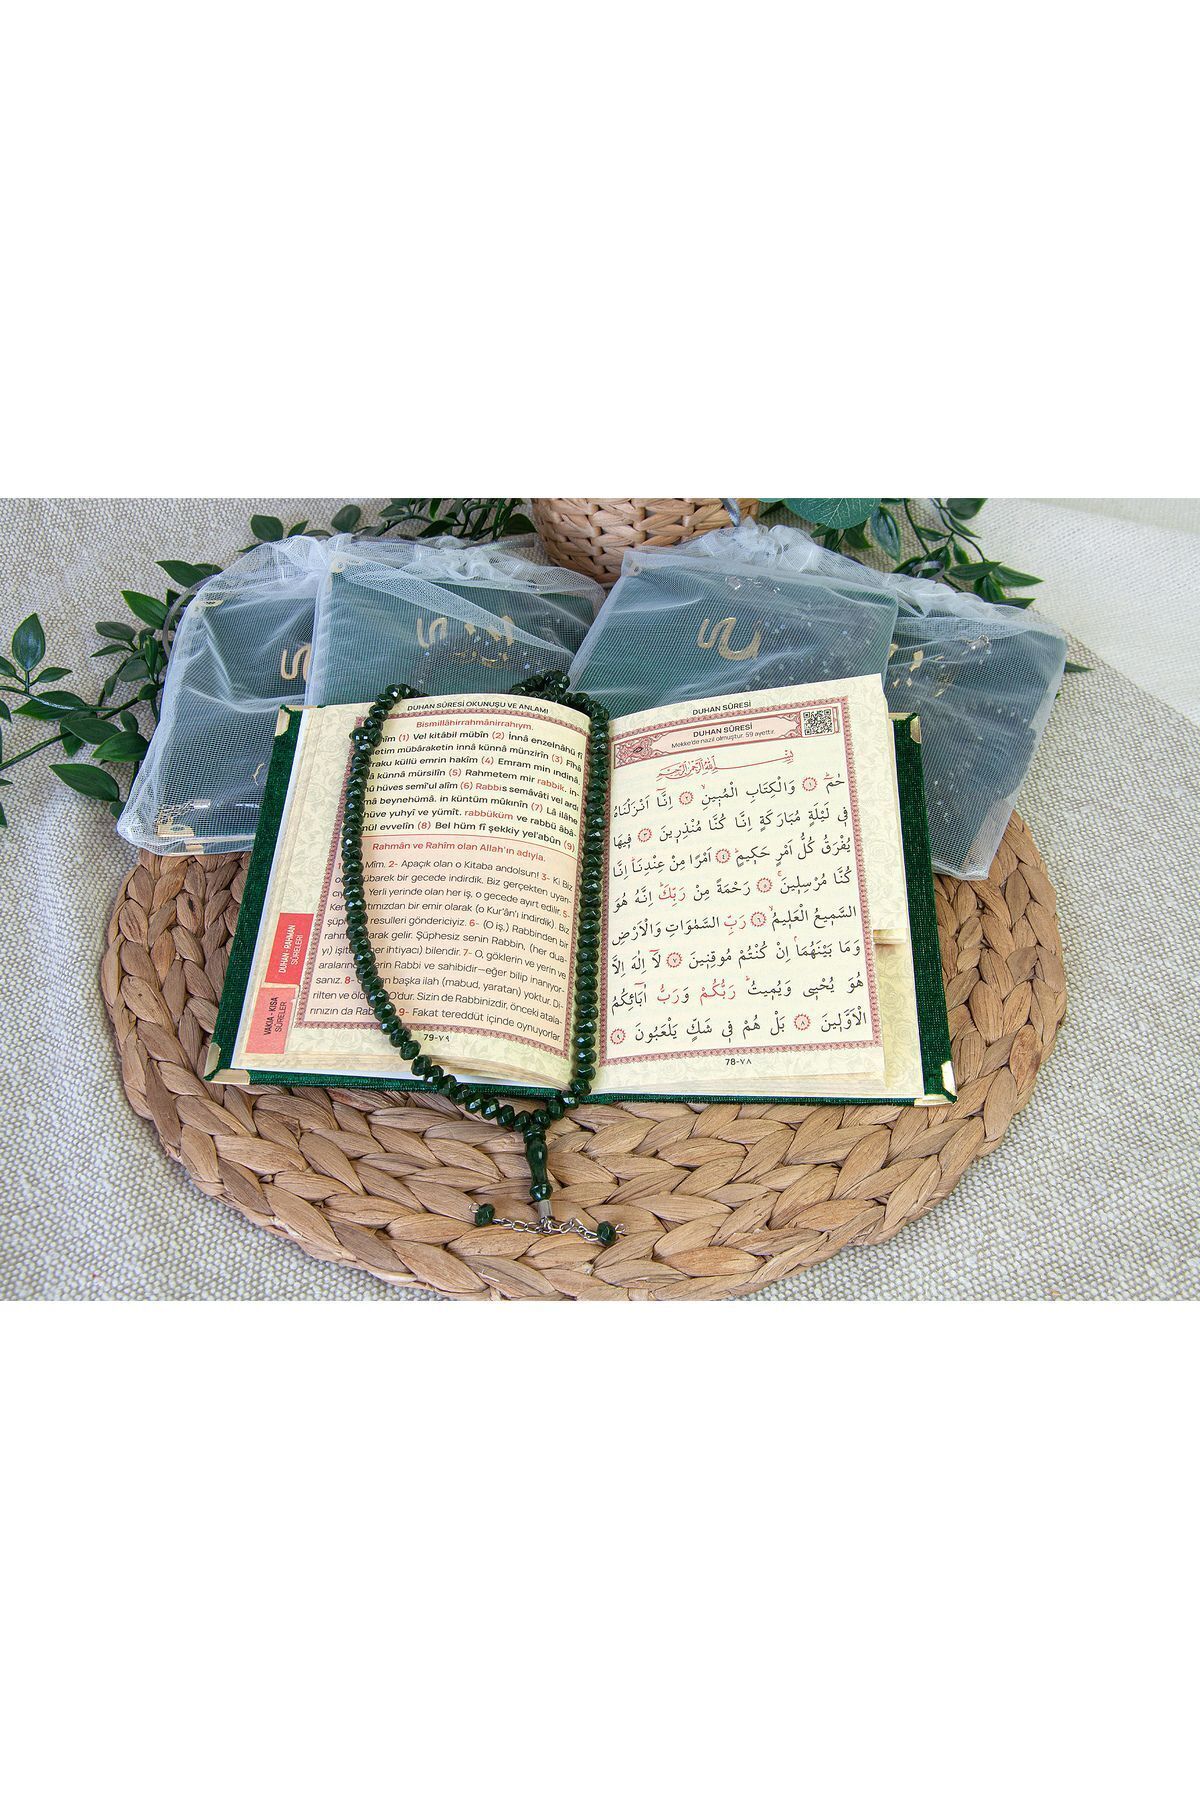 DUHAN SÛRESİ OKUNUŞU VE ANLAMI
Bismillâhirrahmânirrahıym.
(1) Vel kitâbil mübîn (2) İnnâ enzelnâhü fî
mübâraketin innâ künnâ münzirîn (3) Fîhâ
küllü emrin hakîm (4) Emram min ındinâ,
künnâ mürsilîn (5) Rahmetem mir rabbik. in-
hüves semî'ul alîm (6) Rabbis semâvâti vel ardı
beynehümâ. in küntüm mûkınîn (7) Lâ ilâhe
hüve yuhyî ve yümît. rabbüküm ve rabbü âbâ-
evvelîn (8) Bel hüm fî şekkiy yel'abûn (9)
Rahmân ve Rahîm olan Allah'ın adıyla.
Mîm. 2- Apaçık olan o Kitaba andolsun! 3- Ki Biz
bir gecede indirdik. Biz gerçekten uyarı-
Yerli yerinde olan her iş, o gecede ayırt edilir. 5-
bir emir olarak (o Kur'ân'ı indirdik). Biz
resulleri göndericiyiz. 6- (O iş,) Rabbinden bir
gelir. Şüphesiz senin Rabbin, (her dua-
yı) her ihtiyacı) bilendir. 7- O, göklerin ve yerin ve
Rabbi ve sahibidir—eğer bilip inanıyor-
sanız. 8- başka ilah (mabud, yaratan) yoktur. Di-
rilten ve O'dur. Sizin de Rabbinizdir, önceki atala-
rınızın da 9- Fakat tereddüt içinde oynuyorlar.
79-٧٩
DUHAN - RAHMAN
SÛRELERİ
VAKIA - KISA
SÛRELER
DUHAN SÛRESİ
DUHAN SÛRESİ
Mekke'de nazil olmuştur. 59 ayettir.
بِسْمِ اللّٰهِ الرَّحْمٰنِ الرَّحِيمِ
حٰمٓ ١ وَالْكِتَابِ الْمُبٖينِ ٢ اِنَّٓا اَنْزَلْنَاهُ
فٖي لَيْلَةٍ مُبَارَكَةٍ اِنَّا كُنَّا مُنْذِرٖينَ ٣ فٖيهَا
يُفْرَقُ كُلُّ اَمْرٍ حَكٖيمٍ ٤ اَمْرًا مِنْ عِنْدِنَا اِنَّا
كُنَّا مُرْسِلٖينَ ٥ رَحْمَةً مِنْ رَبِّكَ اِنَّهُ هُوَ
السَّمٖيعُ الْعَلٖيمُ ٦ رَبِّ السَّمٰوَاتِ وَالْاَرْضِ
وَمَا بَيْنَهُمَا اِنْ كُنْتُمْ مُوقِنٖينَ ٧ لَٓا اِلٰهَ اِلَّا
هُوَ يُحْيٖي وَيُمٖيتُ رَبُّكُمْ وَرَبُّ اٰبَٓائِكُمُ
الْاَوَّلٖينَ ٨ بَلْ هُمْ فٖي شَكٍّ يَلْعَبُونَ ٩
78-٧٨